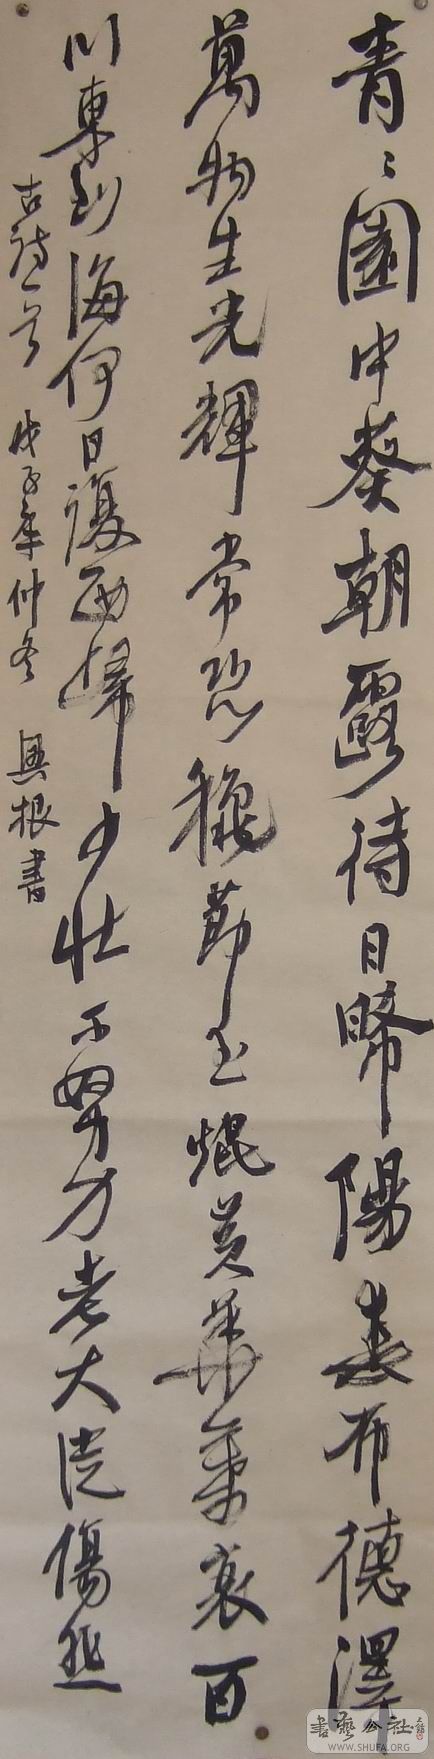 青々園中葵朝露待日晞陽春布德澤
萬物生光輝常恐秋節至焜黃華葉衰百
川東到海何日復西歸少壯不努力老大徒傷悲
古詩一首 戊子年仲冬 興根書
書藝公社
WWW.SHUFA.ORG